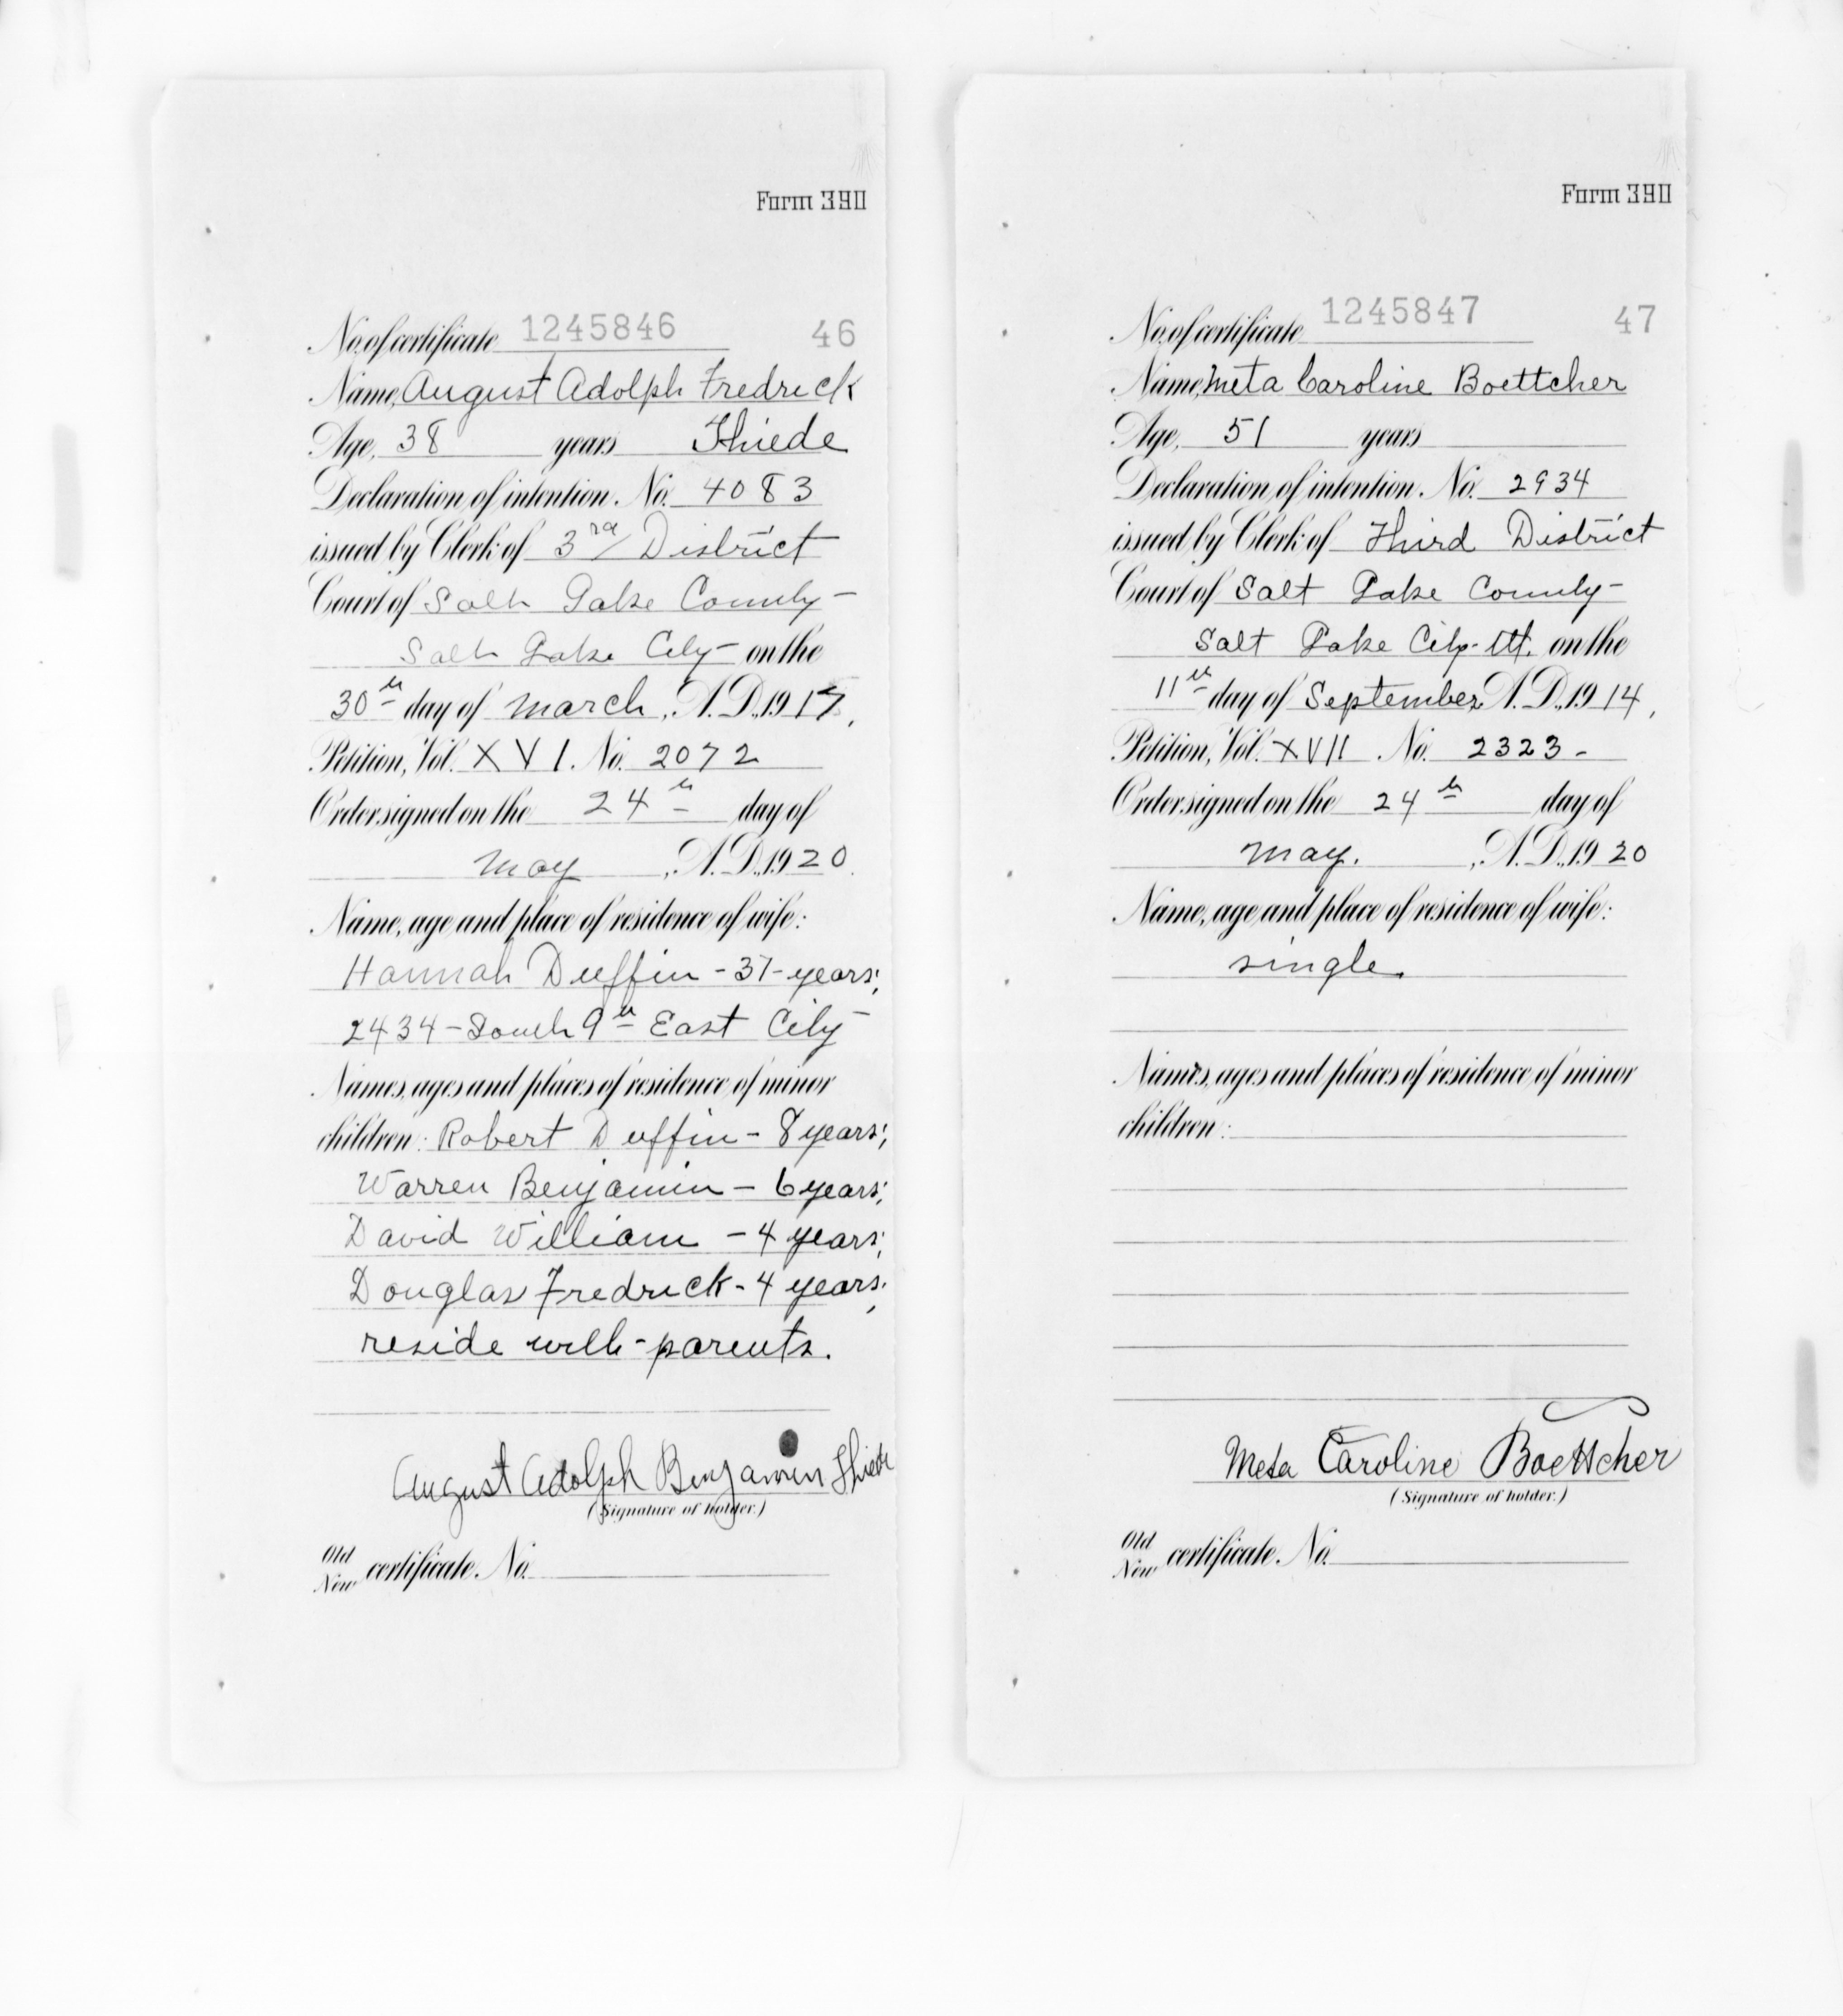 Form 390
No. of certificate 1245846 46
Name, August Adolph Fredrick
Age, 38 years Thiede
Declaration of intention. No. 4083
issued by Clerk of 3rd District
Court of Salt Lake County
Salt Lake City on the
30th day of March, A.D. 1917,
Petition, Vol. XVI. No. 2072
Order signed on the 24th day of
May, A.D. 1920
Name, age and place of residence of wife:
Hannah Duffin - 37 - years;
2434 - South 9th East City
Names, ages and places of residence of minor
children: Robert Duffin - 8 years;
Warren Benjamin - 6 years;
David William - 4 years;
Douglas Fredrick - 4 years;
reside with parents.
August Adolph Benjamin Thiede
(Signature of holder.)
Old
New certificate. No.
Form 390
No. of certificate 1245847 47
Name, Meta Caroline Boettcher
Age, 51 years
Declaration of intention. No. 2934
issued by Clerk of Third District
Court of Salt Lake County
Salt Lake City - Ut. on the
11th day of September A.D. 1914,
Petition, Vol. XVII No. 2323 -
Order signed on the 24th day of
May. , A.D. 1920
Name, age and place of residence of wife:
single.
Names, ages and places of residence of minor
children:
Meta Caroline Boettcher
(Signature of holder.)
Old
New certificate. No.